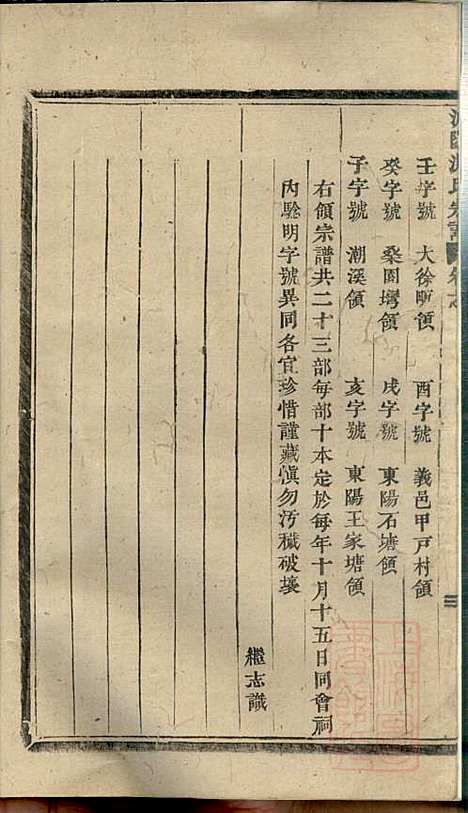 壬字號 大徐畈領 酉字號 義邑甲戸村領
癸字號 桑園塆領 戌字號 東陽石塘領
子字號 潮溪領 亥字號 東陽王家塘領
右領宗譜共二十三部每部十本定於每年十月十五日同會祠
內驗明字號異同各宜珍惜謹藏愼勿汚穢破壞
繼志識